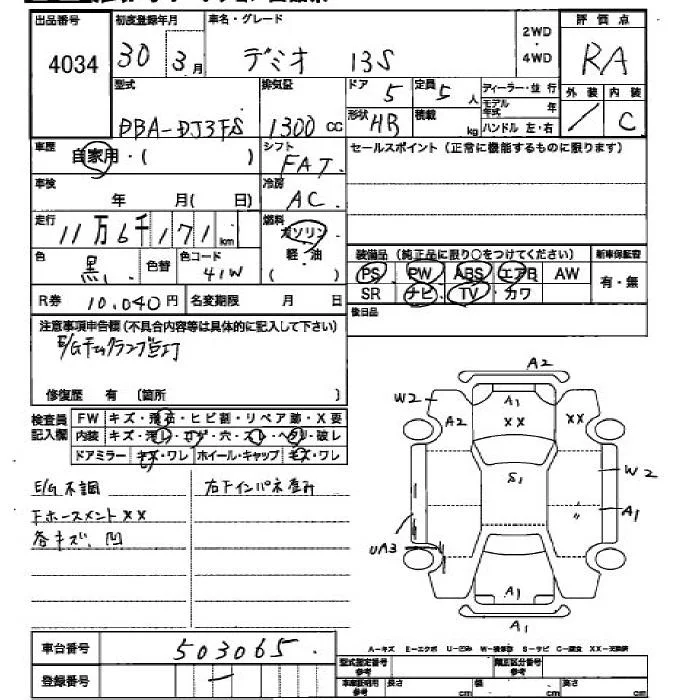 出品番号 初度登録年月 車名・グレード 2WD・4WD 評価点
4034 30 3月 デミオ 13S RA
型式 排気量 ドア 5 定員 5人 ディーラー・並行 外装 内装
モデル年式 年
DBA-DJ3FS 1300cc 形状 HB 積載 kg ハンドル 左・右 / C
車歴 自家用・( ) シフト FAT セールスポイント(正常に機能するものに限ります)
車検 年 月( 日) 冷房 AC
走行 11万6千171km 燃料 ガソリン 軽・油 ( )
色 黒 色替 色コード 41W
装備品(純正品に限り○をつけてください) 新車保証書
PS PW ABS エアB AW 有・無
SR ナビ TV カワ
R券 10,040円 名変期限 月 日 後日品
注意事項申告欄(不具合内容等は具体的に記入して下さい)
修復歴 有 〔箇所 〕
検査員記入欄 FW キズ・飛石・ヒビ割・リペア跡・X要
ドアミラー キズ・ワレ ホイール・キャップ キズ・ワレ
E/G不調
各キズ、凹
A2
W2 A1
A2 XX XX
S1 W2
A1
UA3
A1
A1
車台番号 503065
登録番号 ー
型式指定番号 参考 類別区分番号 参考
長さ cm 幅 cm 高さ cm